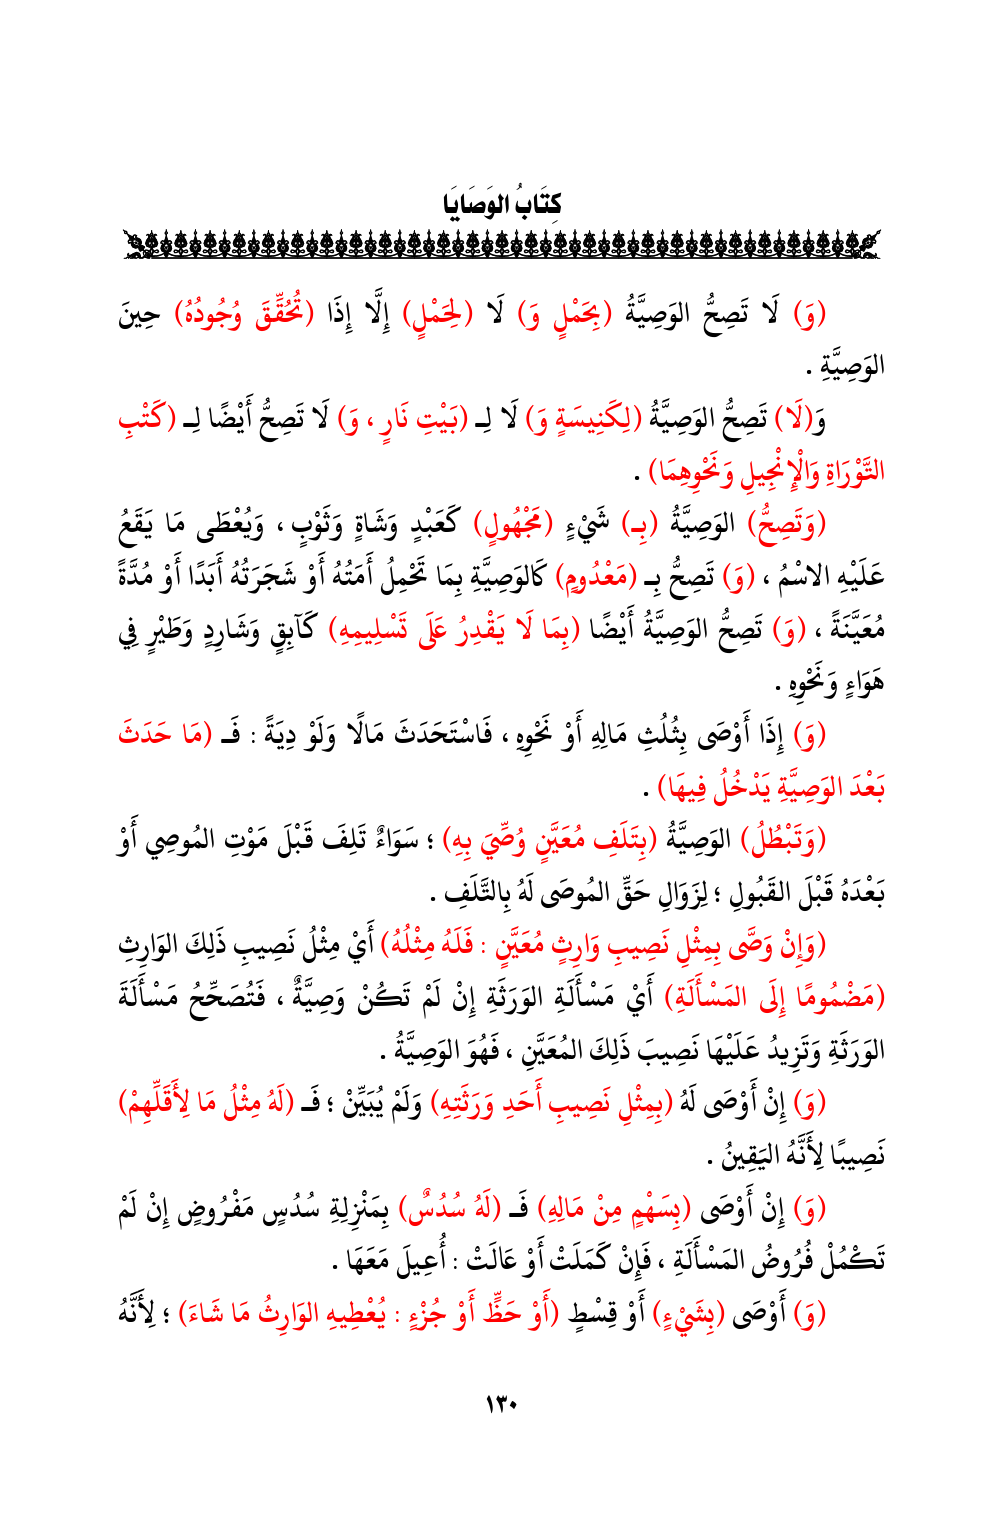 كِتَابُ الوَصَايَا
(وَ) لَا تَصِحُّ الوَصِيَّةُ (بِحَمْلٍ وَ) لَا (لِحَمْلٍ) إِلَّا إِذَا (تُحُقِّقَ وُجُودُهُ) حِينَ
الوَصِيَّةِ .
وَ(لَا) تَصِحُّ الوَصِيَّةُ (لِكَنِيسَةٍ وَ) لَا لِـ (بَيْتِ نَارٍ ، وَ) لَا تَصِحُّ أَيْضًا لِـ (كَتْبِ
التَّوْرَاةِ وَالْإِنْجِيلِ وَنَحْوِهِمَا) .
(وَتَصِحُّ) الوَصِيَّةُ (بِـ) شَيْءٍ (مَجْهُولٍ) كَعَبْدٍ وَشَاةٍ وَثَوْبٍ ، وَيُعْطَى مَا يَقَعُ
عَلَيْهِ الاسْمُ ، (وَ) تَصِحُّ بِـ (مَعْدُومٍ) كَالوَصِيَّةِ بِمَا تَحْمِلُ أَمَتُهُ أَوْ شَجَرَتُهُ أَبَدًا أَوْ مُدَّةً
مُعَيَّنَةً ، (وَ) تَصِحُّ الوَصِيَّةُ أَيْضًا (بِمَا لَا يَقْدِرُ عَلَى تَسْلِيمِهِ) كَآبِقٍ وَشَارِدٍ وَطَيْرٍ فِي
هَوَاءٍ وَنَحْوِهِ .
(وَ) إِذَا أَوْصَى بِثُلُثِ مَالِهِ أَوْ نَحْوِهِ ، فَاسْتَحَدَثَ مَالًا وَلَوْ دِيَةً : فَـ (مَا حَدَثَ
بَعْدَ الوَصِيَّةِ يَدْخُلُ فِيهَا) .
(وَتَبْطُلُ) الوَصِيَّةُ (بِتَلَفِ مُعَيَّنٍ وُصِّيَ بِهِ) ؛ سَوَاءٌ تَلِفَ قَبْلَ مَوْتِ المُوصِي أَوْ
بَعْدَهُ قَبْلَ القَبُولِ ؛ لِزَوَالِ حَقِّ المُوصَى لَهُ بِالتَّلَفِ .
(وَإِنْ وَصَّى بِمِثْلِ نَصِيبِ وَارِثٍ مُعَيَّنٍ : فَلَهُ مِثْلُهُ) أَيْ مِثْلُ نَصِيبِ ذَلِكَ الوَارِثِ
(مَضْمُومًا إِلَى المَسْأَلَةِ) أَيْ مَسْأَلَةِ الوَرَثَةِ إِنْ لَمْ تَكُنْ وَصِيَّةٌ ، فَتُصَحِّحُ مَسْأَلَةَ
الوَرَثَةِ وَتَزِيدُ عَلَيْهَا نَصِيبَ ذَلِكَ المُعَيَّنِ ، فَهُوَ الوَصِيَّةُ .
(وَ) إِنْ أَوْصَى لَهُ (بِمِثْلِ نَصِيبِ أَحَدِ وَرَثَتِهِ) وَلَمْ يُبَيِّنْ ؛ فَـ (لَهُ مِثْلُ مَا لِأَقَلِّهِمْ)
نَصِيبًا لِأَنَّهُ اليَقِينُ .
(وَ) إِنْ أَوْصَى (بِسَهْمٍ مِنْ مَالِهِ) فَـ (لَهُ سُدُسٌ) بِمَنْزِلِةِ سُدُسٍ مَفْرُوضٍ إِنْ لَمْ
تَكْمُلْ فُرُوضُ المَسْأَلَةِ ، فَإِنْ كَمَلَتْ أَوْ عَالَتْ : أُعِيلَ مَعَهَا .
(وَ) أَوْصَى (بِشَيْءٍ) أَوْ قِسْطٍ (أَوْ حَظٍّ أَوْ جُزْءٍ : يُعْطِيهِ الوَارِثُ مَا شَاءَ) ؛ لِأَنَّهُ
١٣٠